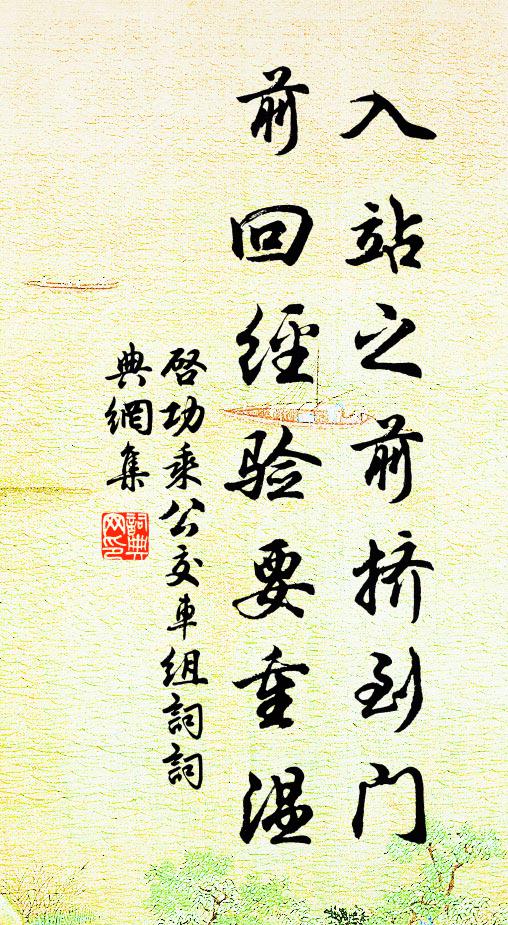 入站之前挤到门
前回经验要重温
啓功乘公交車组詞詞
典網集
詞典
网印